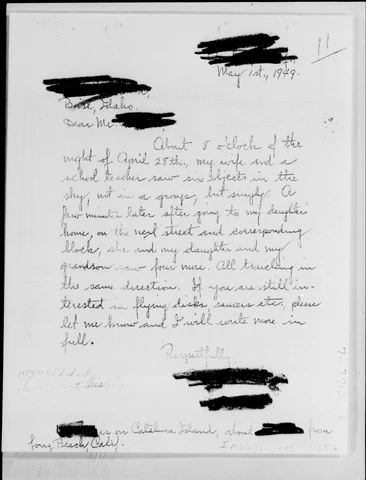 11
May 1st., 1949.
Boise, Idaho.
Dear Mr.
About 8 o'clock of the
night of April 28th., my wife and a
school teacher saw six objects in the
sky, not in a group, but singly. A
few minutes later after going to my daughter's
home, on the next street and corresponding
block, she and my daughter and my
grandson saw four more. All traveling in
the same direction. If you are still in-
terested in flying disks, saucers etc., please
let me know and I will write more in
full.
Respectfully,
is on Catalina Island, about from
Long Beach, Calif.